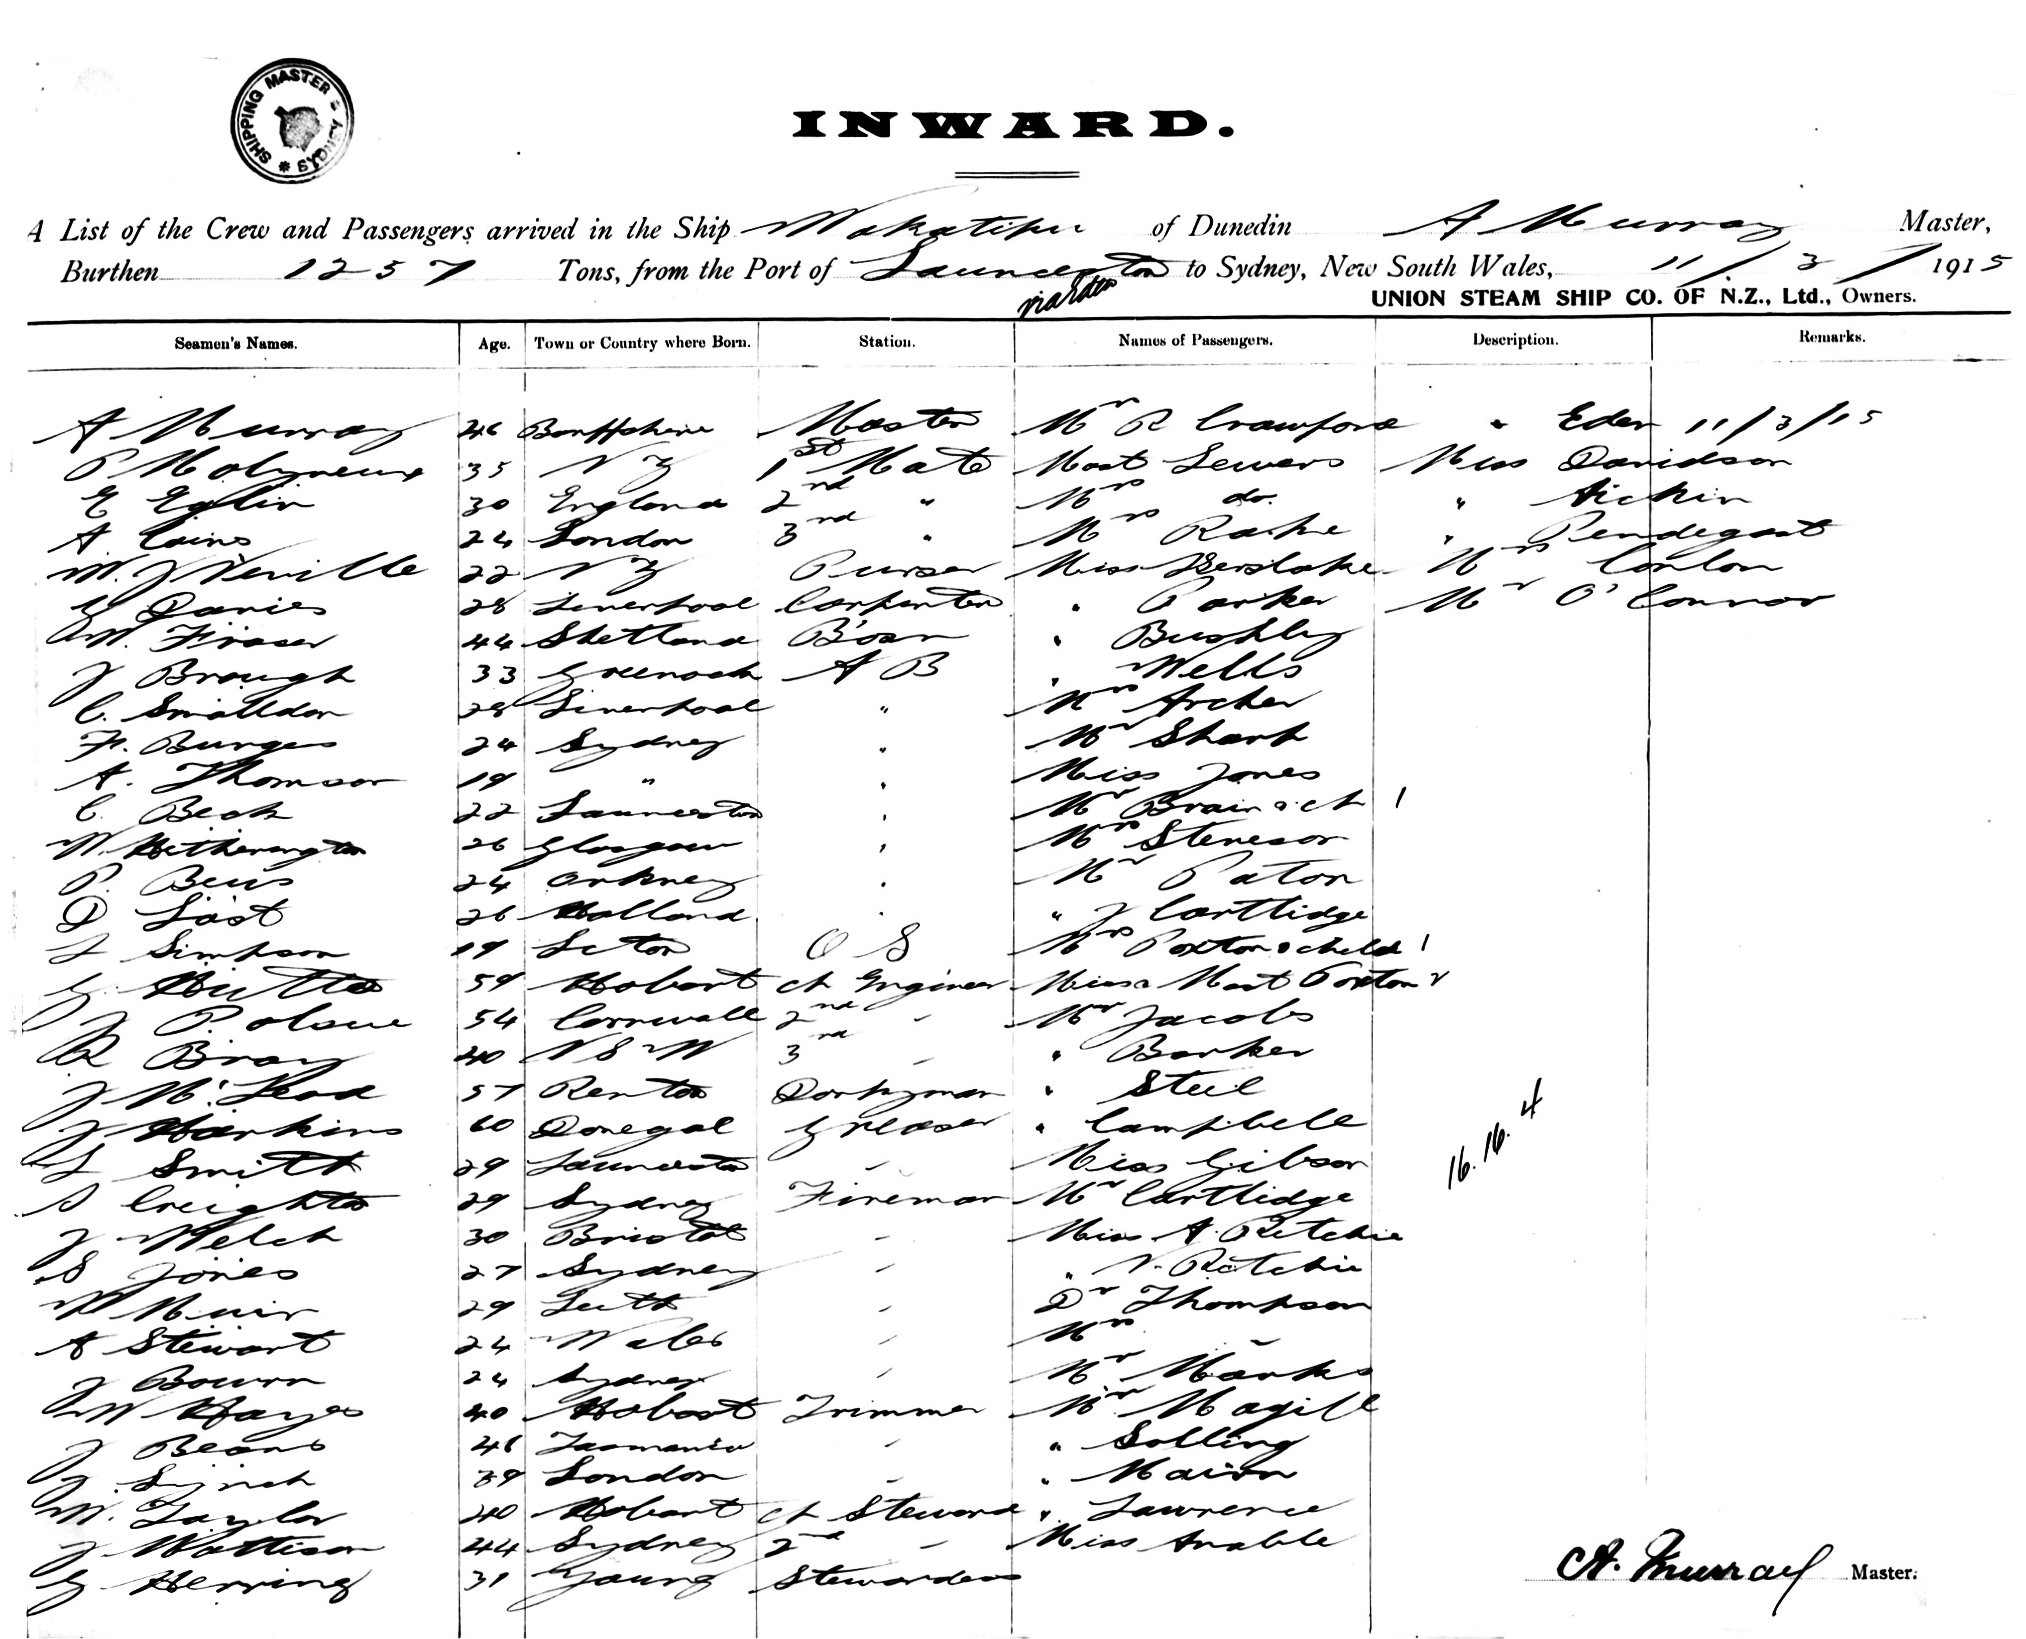 SHIPPING MASTER SYDNEY
INWARD.
A List of the Crew and Passengers arrived in the Ship Wakatipu of Dunedin A Murray Master,
Burthen 1257 Tons, from the Port of Launceston to Sydney, New South Wales, 11/3/1915
UNION STEAM SHIP CO. OF N.Z., Ltd., Owners.
Seamen's Names. Age. Town or Country where Born. Station. Names of Passengers. Description. Remarks.
A Murray 46 Banffshire Master Mr R Crawford " Eden 11/3/15
P Molyneux 35 N Z 1st Mate Mast Lewers Miss Davidson
E Eglin 30 England 2nd " Mrs do. " Aickin
A Cains 24 London 3rd " Mrs Raike " Pendegast
W. J Neville 22 N Z Purser Miss Kerslake Mrs Conlon
G Davies 28 Liverpool Carpenter " Parker Mr O'Connor
W. Fraser 44 Shetland Bosn " Bushby
J Brough 33 Greenock A B " Wells
C. Smalldon 28 Liverpool " Mrs Archer
F. Burges 24 Sydney " Mr Sharp
A. Thomson 19 " " Miss Jones
C. Beck 22 Launceston " Mr Brain & ch 1
W. Hetherington 26 Glasgow " Mrs Stevenson
P. Bews 24 Orkney " Mr Paton
D Last 26 Holland " " J Cartlidge
J Simpson 19 Seton O S Mrs Poxton & child 1
G. Hutton 59 Hobart Ch Engineer Miss & Mast Poxton 2
J Polsue 54 Cornwall 2nd " Mr Jacobs
R Bray 40 N S W 3rd " " Barker
J McLeod 57 Renton Donkyman " Steel
J Harkins 60 Donegal Greaser " Campbell
L Smith 29 Launceston " Miss Gibson
S Creighton 29 Sydney Fireman Mr Cartlidge
J Welch 30 Bristol " Miss A. Ritchie
S Jones 27 Sydney " " N. Ritchie
W Muir 29 Leith " Dr Thompson
A Stewart 24 Wales " Mrs "
J Bourn 24 Sydney " Mr Marks
W Hayes 40 Hobart Trimmer Mr Magill
J Beans 46 Tasmania " " Solling
J Lynch 39 London " " Mairn
W. Taylor 40 Hobart Ch Steward " Lawrence
J Wattison 44 Sydney 2nd " Miss Anable
G Herring 31 Young Stewardess
16. 16. 4
A. Murray Master.